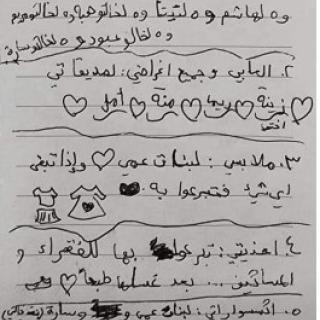 وه لهاشم وه لتيتا وه لخالتو هبه وه لخالتو مريم
وه لخالو عبود وه لخالتو سارة
٢. العابي وجميع اغراضي: لصديقاتي
زينة ريما منة أمل
اختها
٣. ملابسي: لبنات عمي وإذا تبقى
اي شيء فتبرعوا به.
٤. احذيتي: تبرعوا بها للفقراء و
المساكين ... بعد غسلها طبعا
٥. اكسسواراتي: لبنات عمي و وسارة